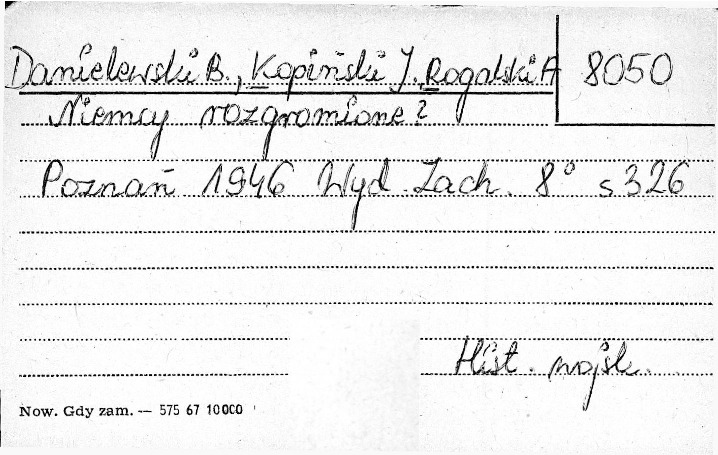 Danielewski B., Kopiński J. Rogalski A
8050
Niemcy rozgromione?
Poznań 1946 Wyd. Zach. 8° s 326
Hist. wojsk.
Now. Gdy zam. — 575 67 10000